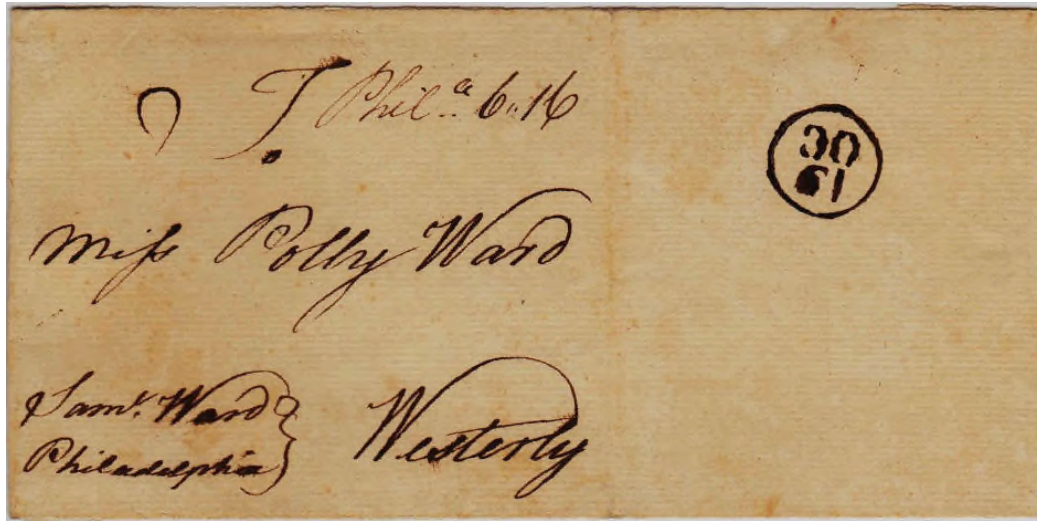 Phil.ᵃ 6..16
Miſs Polly Ward
Samˡ. Ward
Philadelphia
Westerly
19
OC